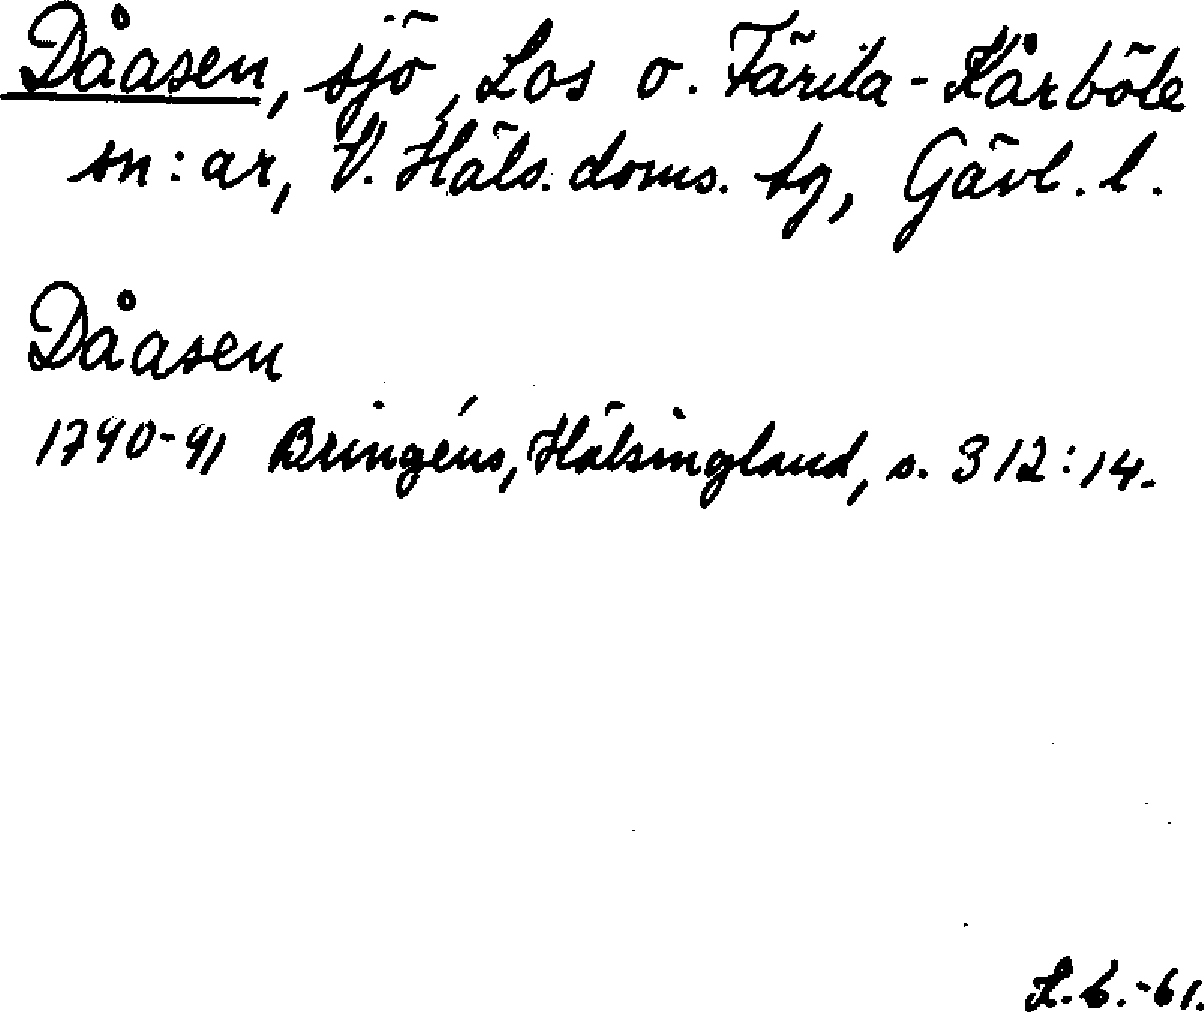 Dåasen, sjö, Los o. Färila-Kårböle
sn:ar, V. Häls. doms. tg, Gävl. l.
Dåasen
1790-91 Bringéus, Hälsingland, s. 312:14.
L.b.-61.